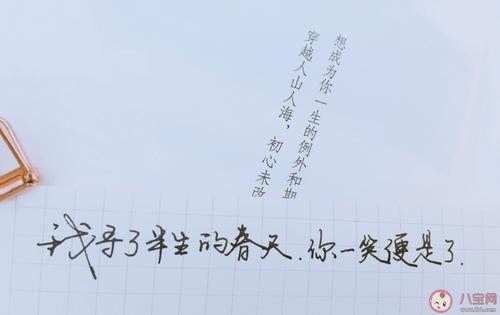 想成为你一生的例外和期
穿越人山人海，初心未改
我寻了半生的春天.你一笑便是了.
八宝网